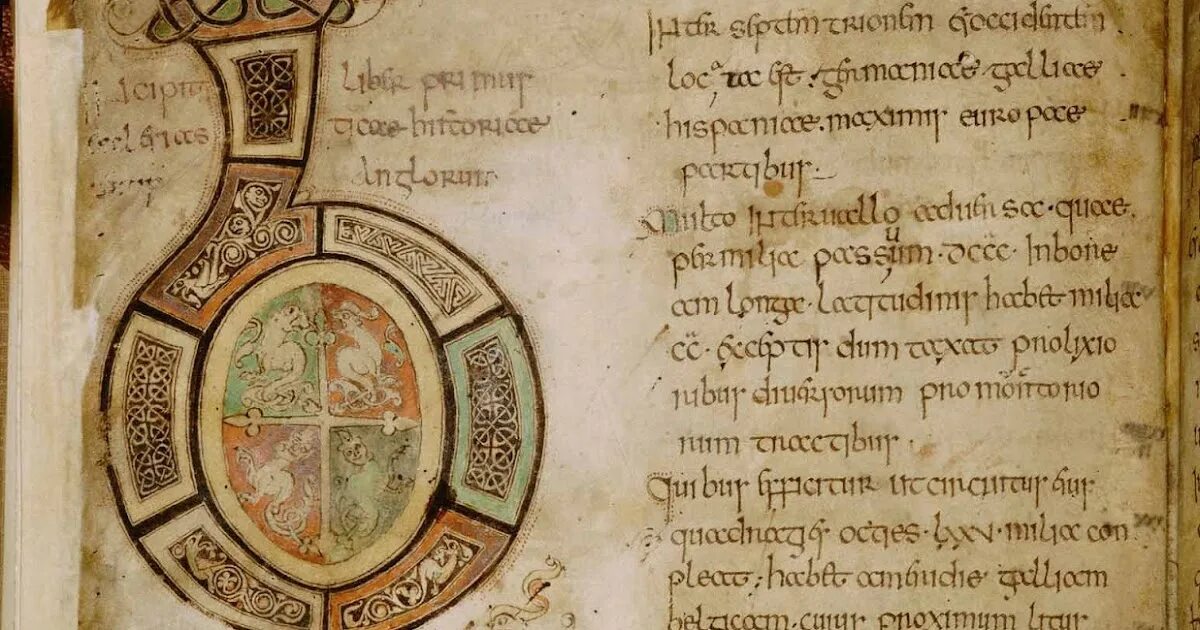 Incipit liber primus
ticae historiae
Anglorum
inter septemtrionem & occidentem
locata est . germaniae . galliae
hispaniae . maximis europae
partibus .
Multo interuallo aduersae . quae
per milia passuum . dccc . In bore
am longa . latitudinis habet milia
cc . exceptis dum taxat prolixio
ribus diuersorum promontorio
rum tractibus .
Quibus efficitur ut circuitus eius
quadragies octies . lxxv . milia con
pleat ; habet a meridie galliam
belgicam . cuius proximum litus